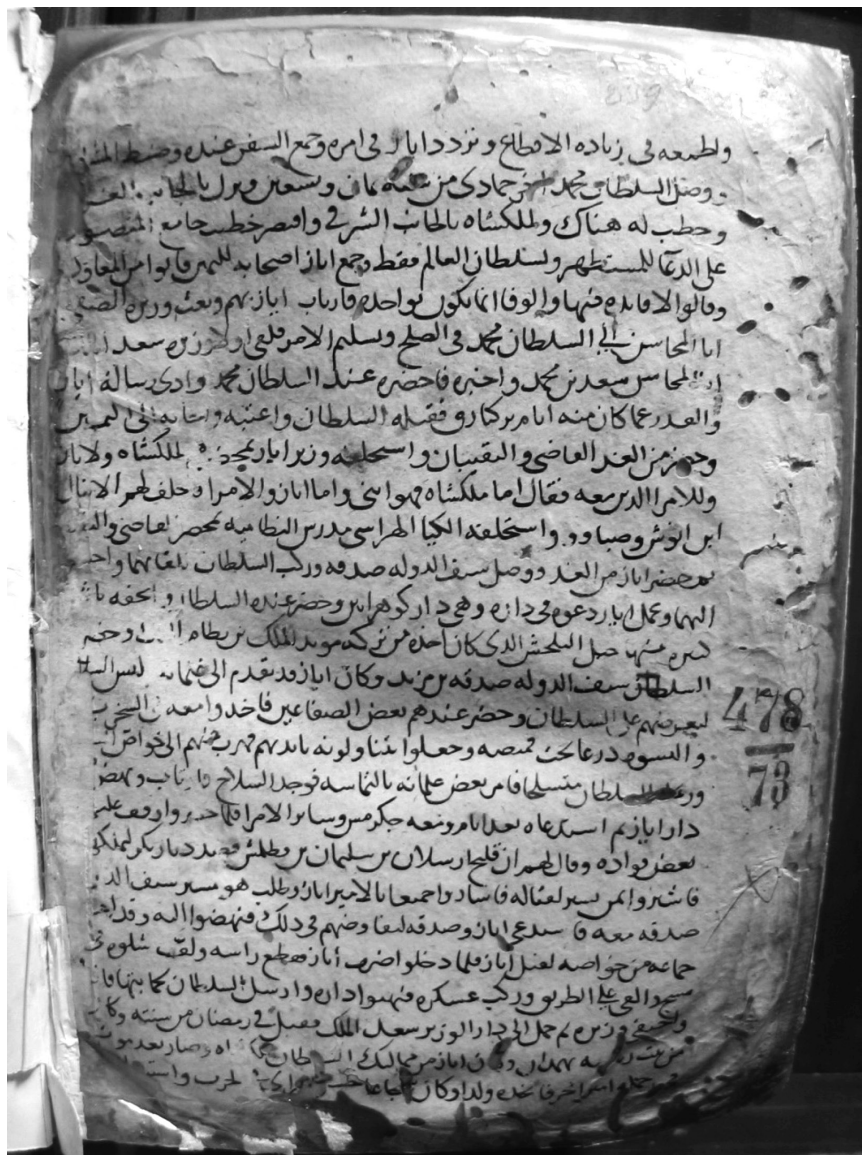 ولطمعه فى زياده الاقطاع وتردد اياز فى امره وجمع السفن عنده وضبط
ووصل السلطان محمد اخر جمادى من سنه ثمان وتسعين ونزل بالجانب
وخطب له هناك ولملكشاه بالجانب الشرقى واقتصر خطيب جامع المنصور
على الدعا للمستظهر ولسلطان العالم فقط وجمع اياز اصحابه لليمين فابوا من المعاوده
وقالوا لا فايده فيها والوفا انما يكون بواحده فارتاب اياز بهم وبعث وزيره الصفى
ابا المحاسن الى السلطان محمد فى الصلح وتسليم الامر فلقى اولا وزيره سعد
ابا المحاسن سعد بن محمد واخبره فاحضره عند السلطان محمد وادى رساله اياز
والعذر عما كان منه ايام بركيارق فقبله السلطان واعتبه واجابه الى اليمين
وحضر من الغد القاضى والنقيبان واستحلفه وزير اياز بمحضرهم لملكشاه ولاياز
وللامرا الذين معه فقال اما ملكشاه فهو ابنى واما اياز والامرا فاحلف لهم الا ينال
ابن انوش وصباوو واستحلفه الكيا الهراسى مدرس النظاميه بمحضر القاضى
ثم حضر اياز من الغد ووصل سيف الدوله صدقه وركب السلطان للقائهما واحسن
اليهما وعمل اياز دعوه فى داره وهى دار كوهرايين وحضر عنده السلطان واتحفه
كثيره منها حبل البلخش الذى كان اخذه من تركه مويد الملك بن نظام الملك وحضر
السلطان سيف الدوله صدقه بن مزيد وكان اياز قد تقدم الى غلمانه لبس السلاح
ليعرضهم على السلطان وحضر عندهم بعض الصفاعين فاخذوا معه فى السخريه
والبسوه درعا تحت قميصه وجعلوا يتناولونه بايديهم فهرب منهم الى خواص
السلطان متسلحا فامر بعض غلمانه بالتماسه فوجد السلاح فارتاب ونهض
دار اياز ثم استدعاه بعد ايام ومعه جكرمس وساير الامرا فلما حضر واوقف عليهم
بعض قواده وقال لهم ان قليج ارسلان بن سليمان بن قطلمش قصد ديار بكر ليملكها
فاشيروا بمن نسير لقتاله فاشاروا جميعا بالامير اياز وطلب هو مسير سيف الدوله
صدقه معه فاستدعى اياز وصدقه ليفاوضهم فى ذلك فنهضوا اليه وقد اعد
جماعه من خواصه لقتل اياز فلما دخلوا ضرب اياز فقطع راسه ولف شلوه فى
مسح والقى على الطريق وركب عسكره فنهبوا داره وارسل السلطان لحمايتها
واختفى وزيره ثم حمل الى دار الوزير سعد الملك فقتل فى رمضان من سنته وكان
من بيت رياسه بهمدان وكان اياز من مماليك السلطان ملكشاه وصار بعد موته
فى جمله امير اخر فاتخذه ولدا وكان شجاعا
478
73